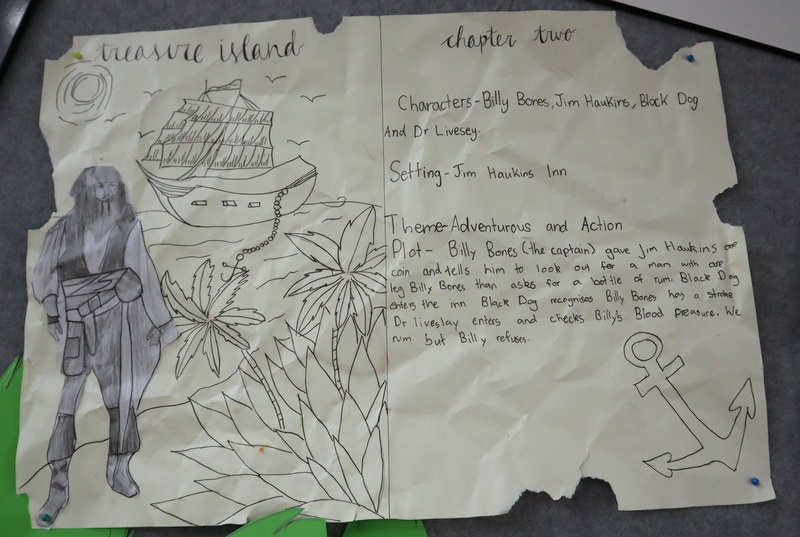 treasure island
chapter two
Characters-Billy Bones, Jim Haukins, Black Dog
And Dr Livesey.
Setting-Jim Haukins Inn
Theme-Adventurous and Action
Plot- Billy Bones (the captain) gave Jim Haukins one
coin and tells him to look out for a man with one
leg Billy Bones than asks for a bottle of rum. Black Dog
enters the inn Black Dog recognises Billy Bones has a stroke
Dr liveslay enters and checks Billy's Blood preasure. We
rum but Billy refuses.